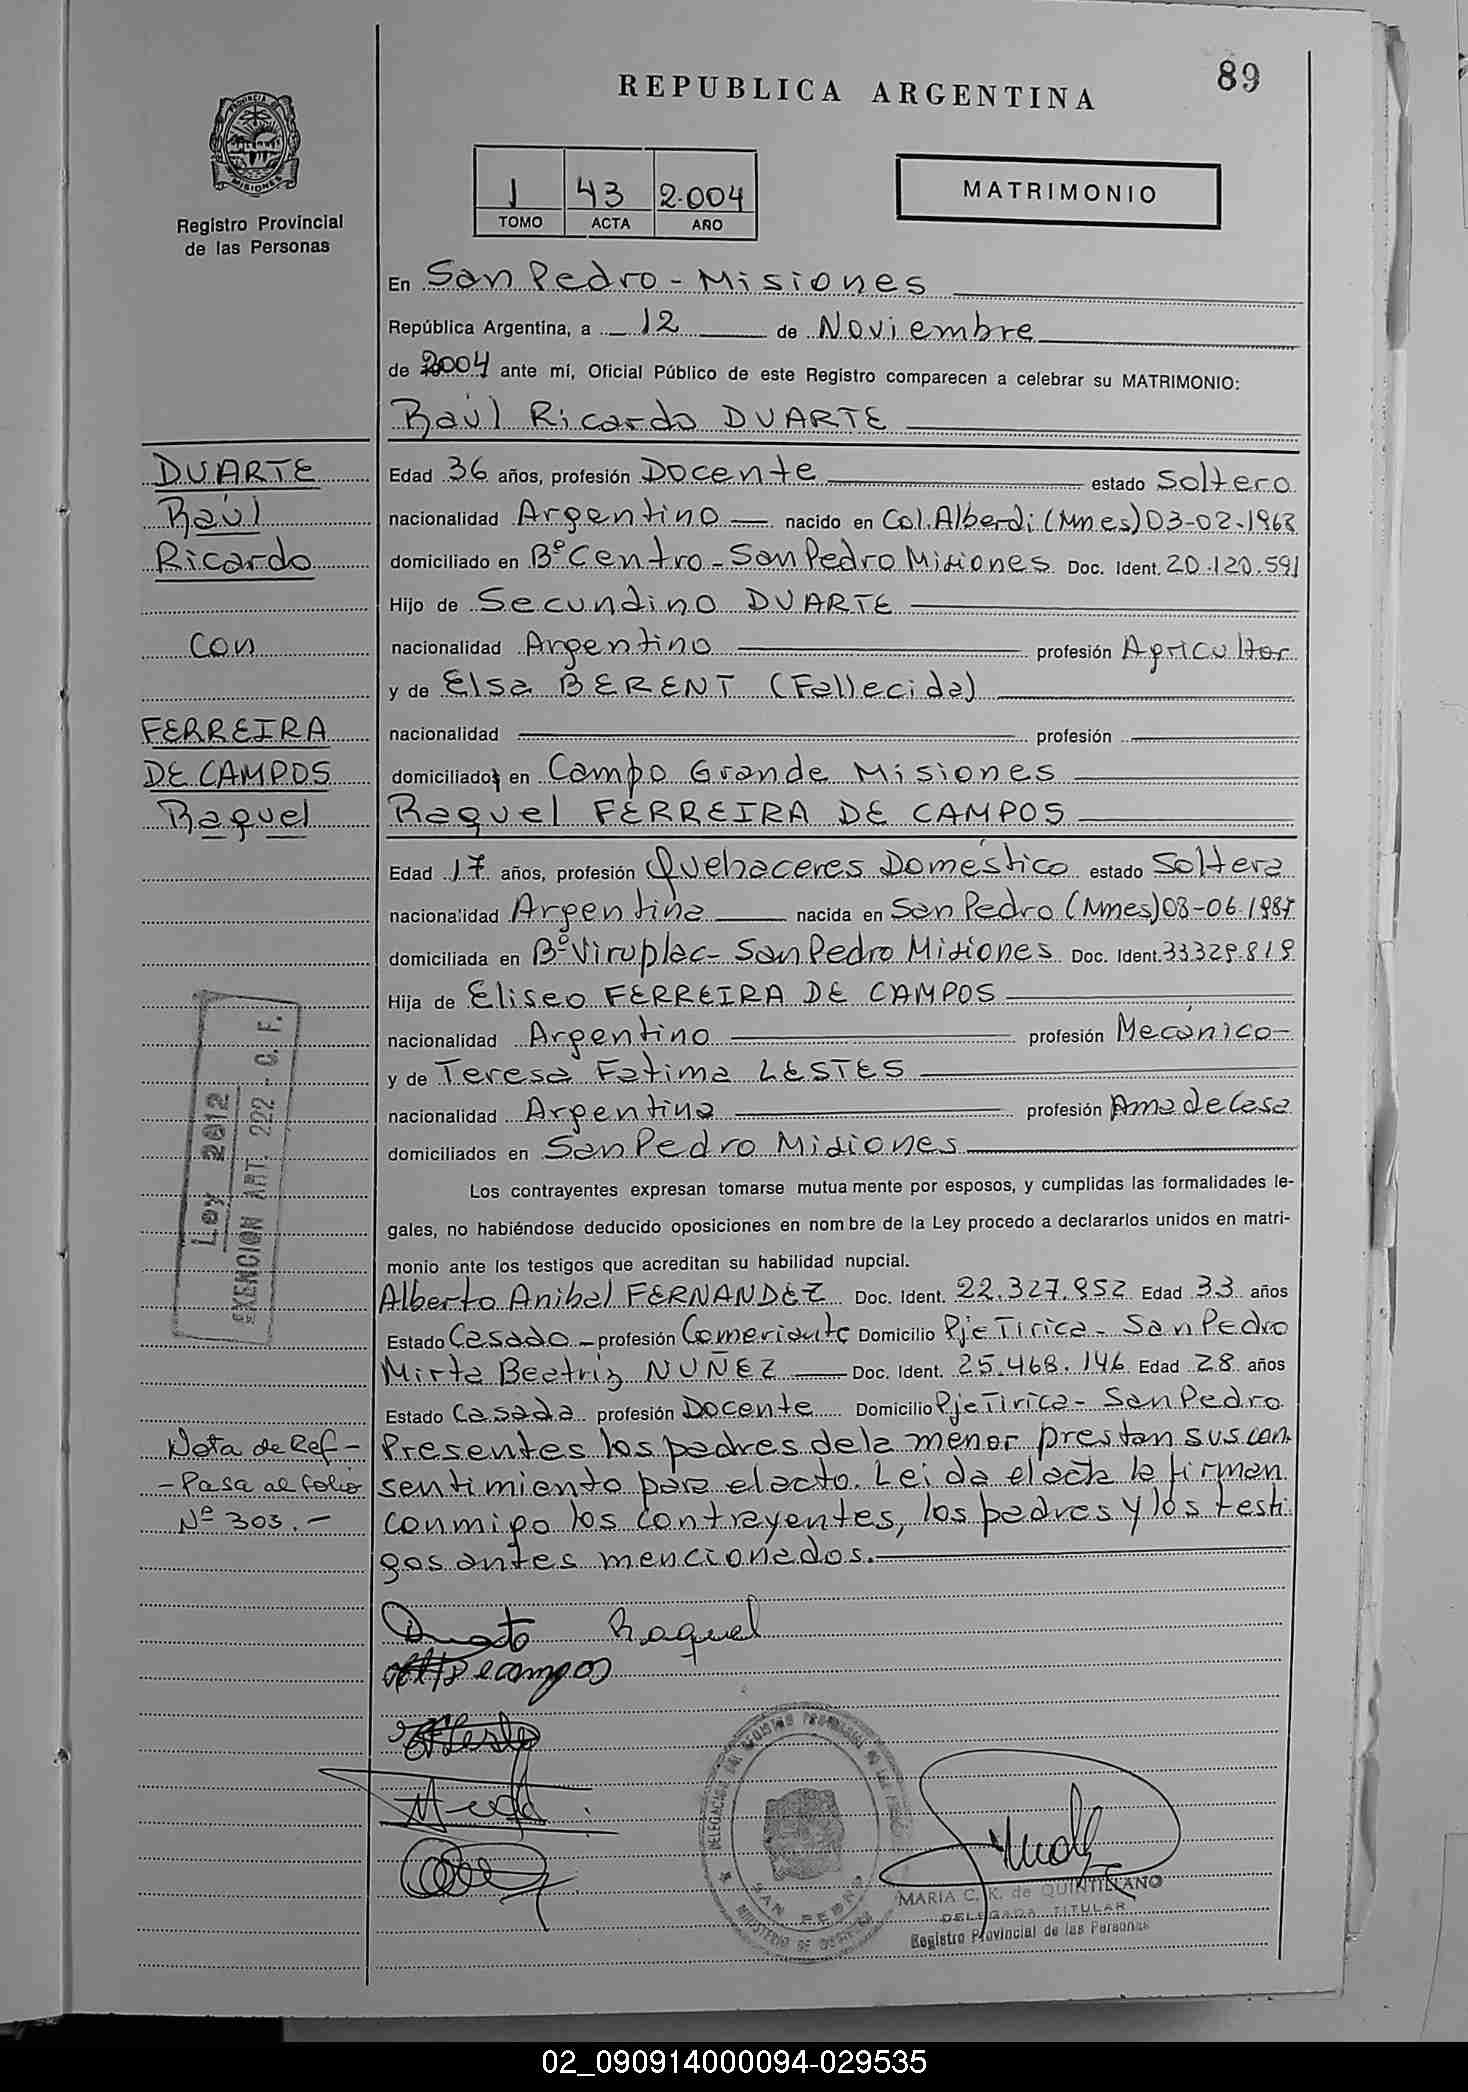 89
REPUBLICA ARGENTINA
PROVINCIA DE
MISIONES
Registro Provincial
de las Personas
1 43 2.004
TOMO ACTA AÑO
MATRIMONIO
En San Pedro - Misiones
República Argentina, a 12 de Noviembre
de 2004 ante mí, Oficial Público de este Registro comparecen a celebrar su MATRIMONIO:
Raúl Ricardo DUARTE
DUARTE
Raúl
Ricardo
con
FERREIRA
DE CAMPOS
Raquel
Edad 36 años, profesión Docente estado Soltero
nacionalidad Argentino nacido en Col. Alberdi (Mnes) 03-02-1968
domiciliado en Bº Centro - San Pedro Misiones Doc. Ident. 20.120.591
Hijo de Secundino DUARTE
nacionalidad Argentino profesión Agricultor
y de Elsa BERENT (Fallecida)
nacionalidad profesión
domiciliados en Campo Grande Misiones
Raquel FERREIRA DE CAMPOS
Edad 17 años, profesión Quehaceres Doméstico estado Soltera
nacionalidad Argentina nacida en San Pedro (Mnes) 03-06-1987
domiciliada en Bº Viruplac - San Pedro Misiones Doc. Ident. 33.329.819
Hija de Eliseo FERREIRA DE CAMPOS
nacionalidad Argentino profesión Mecánico-
y de Teresa Fatima LESTES
nacionalidad Argentina profesión Ama de Casa
domiciliados en San Pedro Misiones
Los contrayentes expresan tomarse mutua mente por esposos, y cumplidas las formalidades le-
gales, no habiéndose deducido oposiciones en nom bre de la Ley procedo a declararlos unidos en matri-
monio ante los testigos que acreditan su habilidad nupcial.
Alberto Anibal FERNANDEZ Doc. Ident. 22.327.952 Edad 33 años
Estado Casado - profesión Comeriante Domicilio Pje Tirica - San Pedro
Mirta Beatriz NUÑEZ Doc. Ident. 25.468.146 Edad 28 años
Estado Casada profesión Docente Domicilio Pje Tirica - San Pedro
Presentes los padres de la menor prestan sus con
sentimiento para el acto. Leida el acta la firman
conmigo los contrayentes, los padres y los testi
gos antes mencionados.
Ley 2012
EXENCION ART. 222 - C. F.
Nota de Ref -
- Pasa al folio
Nº 303.-
Raquel
Decampos
DELEGACION DEL REGISTRO PROVINCIAL DE LAS PERSONAS
SAN PEDRO
MINISTERIO DE GOBIERNO
MARIA C. K. de QUINTILLANO
DELEGADA TITULAR
Registro Provincial de las Personas
02_090914000094-029535